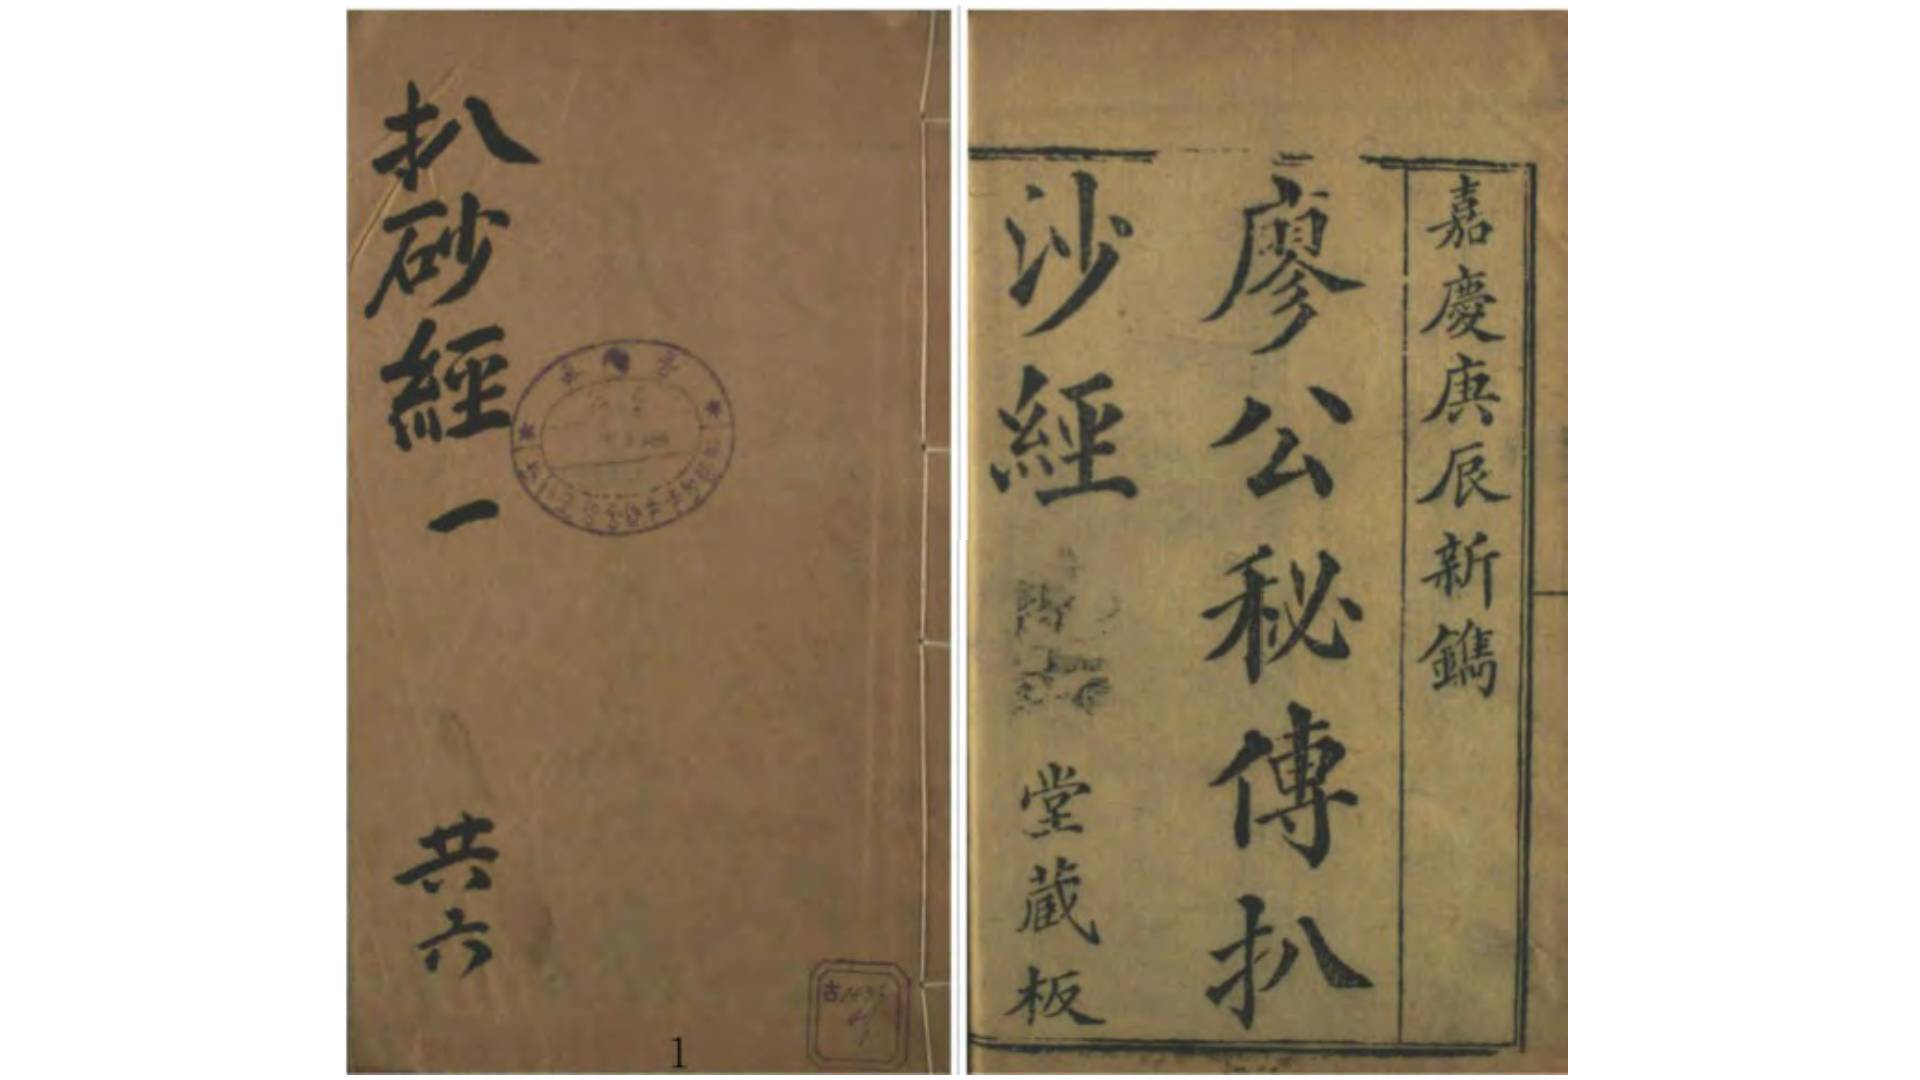 扒砂經一
共六
古
1
嘉慶庚辰新鐫
廖公秘傳扒
沙經
堂藏板